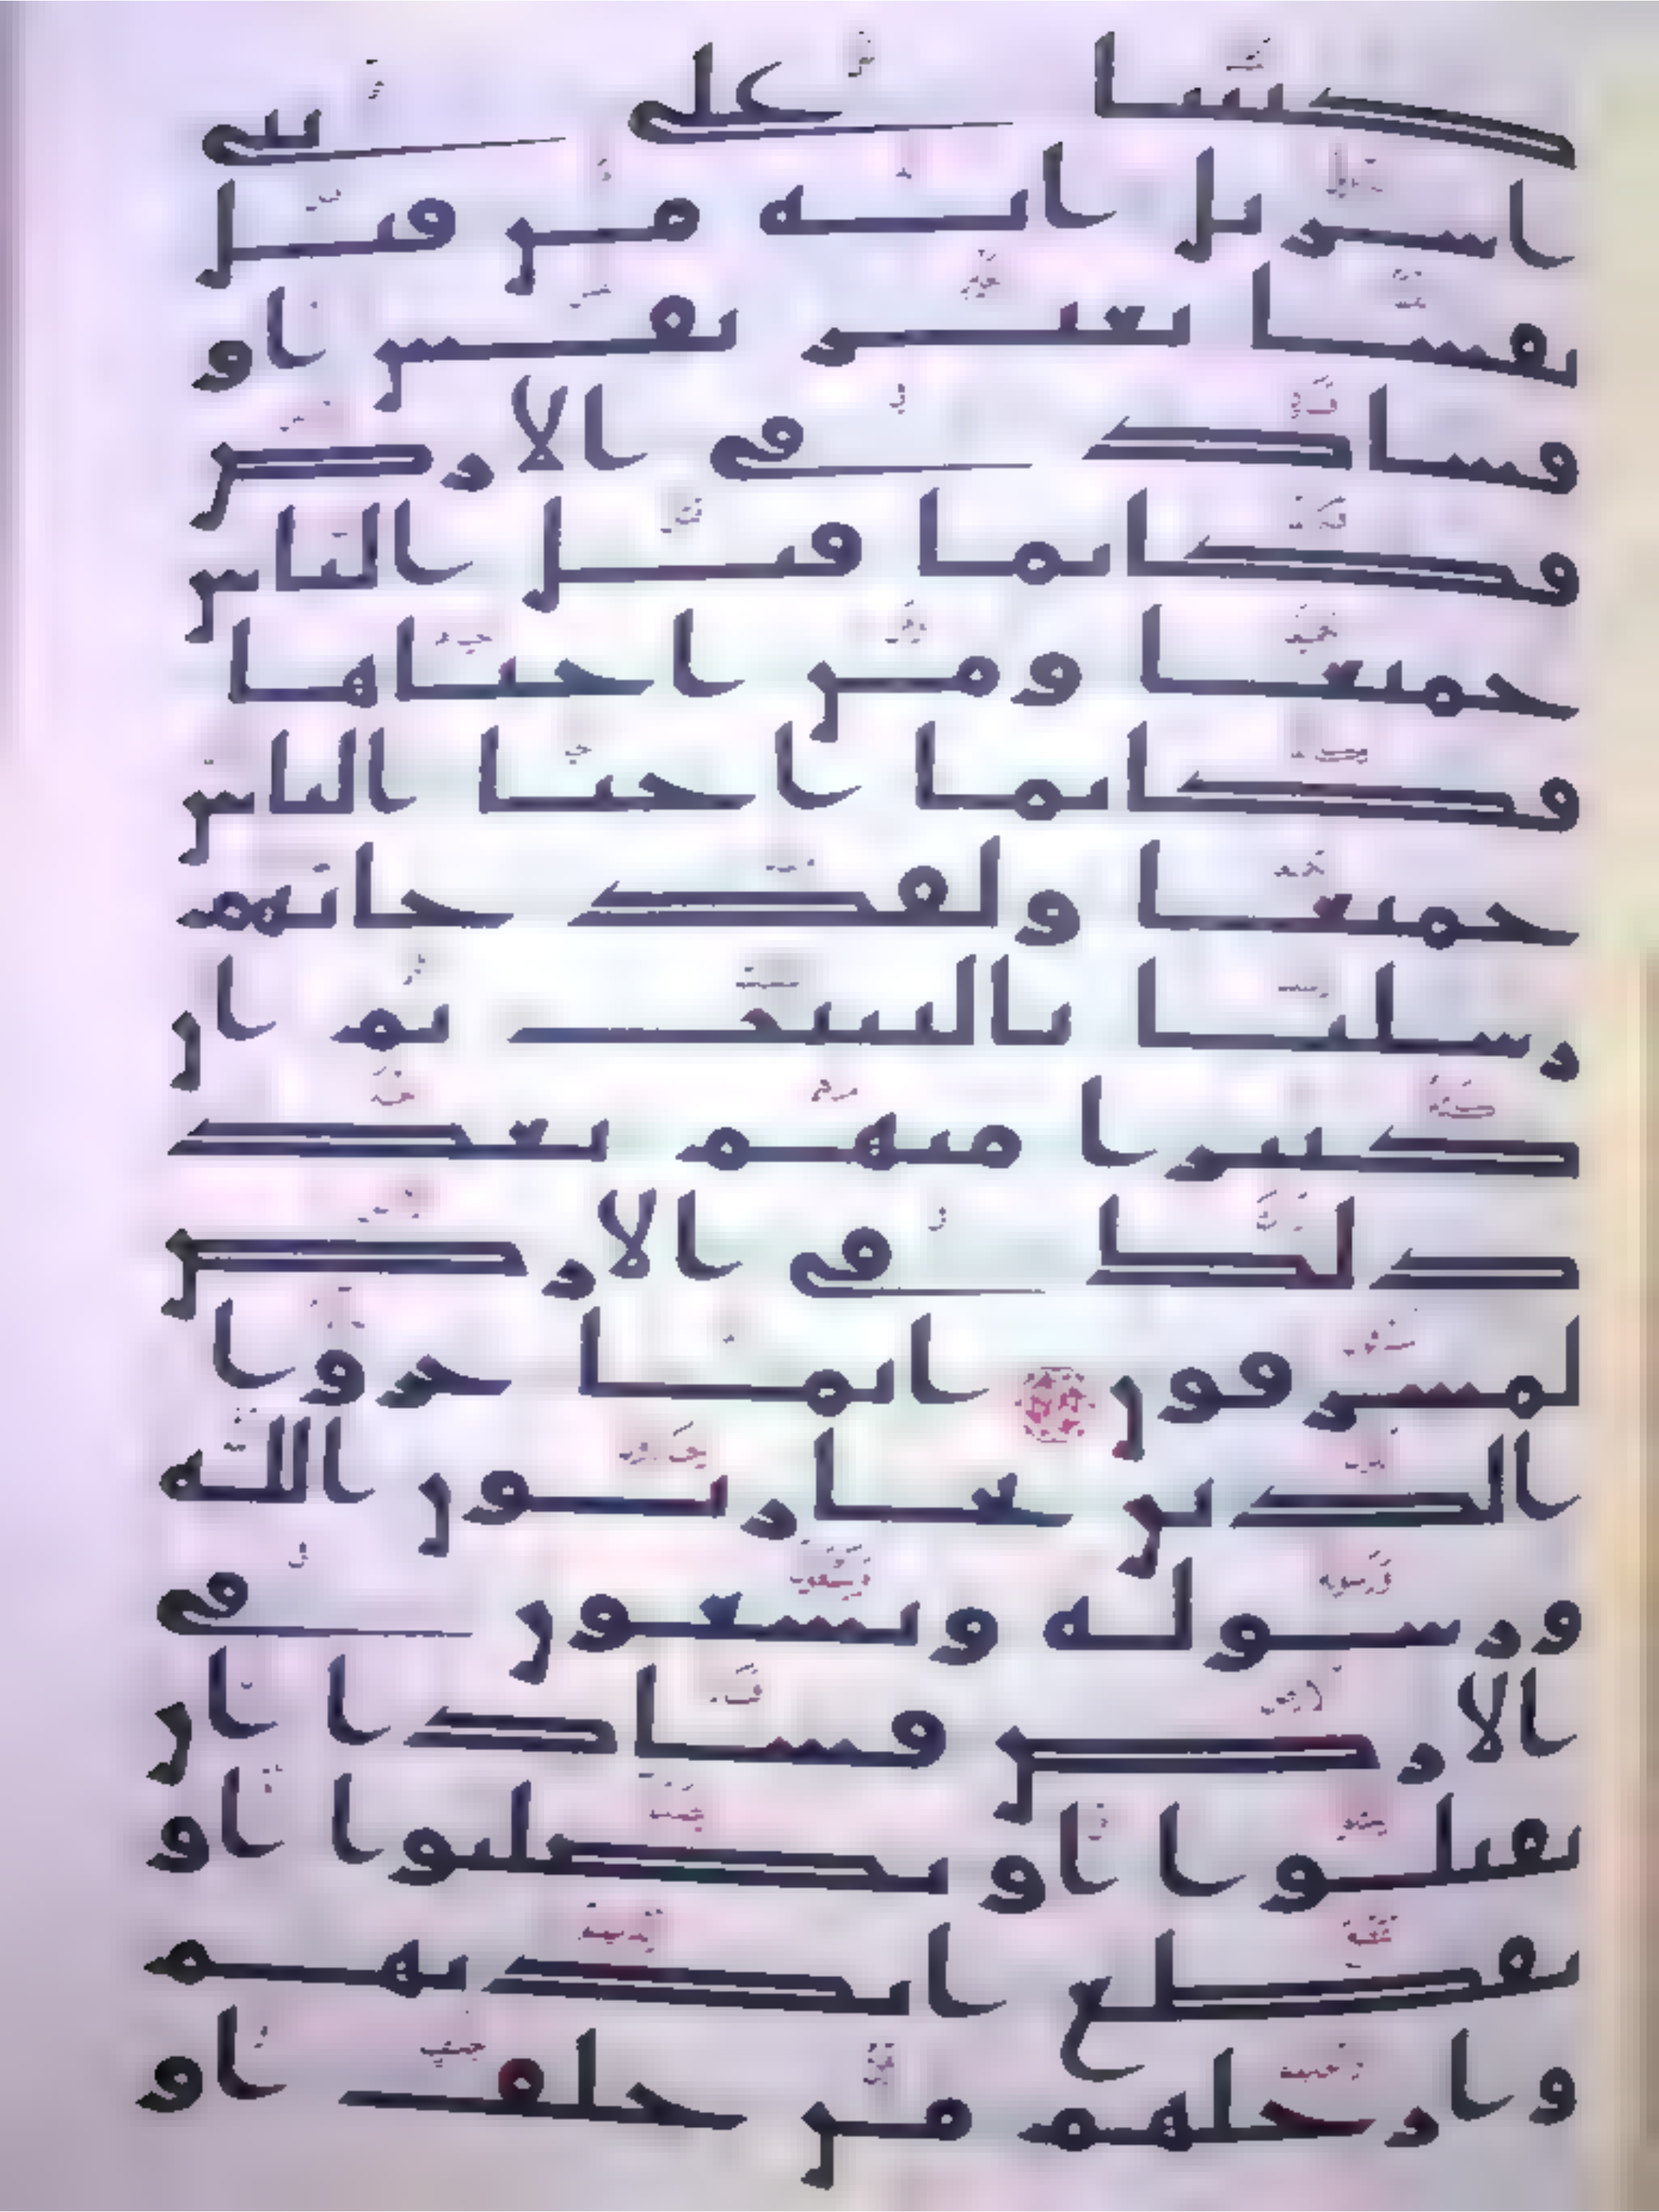 كتبنا على بني
اسريل انه من قتل
نفسا بغير نفس او
فساد في الارض
فكانما قتل الناس
جميعا ومن احياها
فكانما احيا الناس
جميعا ولقد جاتهم
رسلنا بالبينت ثم ان
كثيرا منهم بعد
ذلك في الارض
لمسرفون انما جزوا
الذين يحاربون الله
ورسوله ويسعون في
الارض فسادا ان
يقتلوا او يصلبوا او
تقطع ايديهم
وارجلهم من خلف او